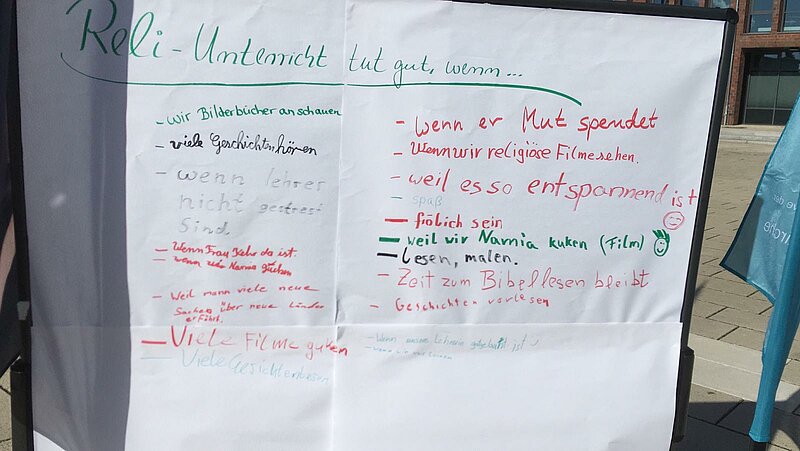 Reli-Unterricht tut gut, wenn...
- wir Bilderbücher anschauen
- viele Geschichten hören
- wenn lehrer
nicht gestresst
Sind
- Wenn Frau da ist.
- wenn wir Narnia gucken
- Weil mann viele neue
Sachen über neue Länder
erfährt.
- Viele Filme guken
- Viele Gesichten lesen
- wenn er Mut spendet
- Wenn wir religiöse Filme sehen.
- weil es so entspannend ist
- spaß
- frölich sein
- weil wir Narnia kuken (Film)
- Lesen, malen.
- Zeit zum Bibellesen bleibt
- Geschichten vorlesen
- Wenn unsere Lehrerin ist